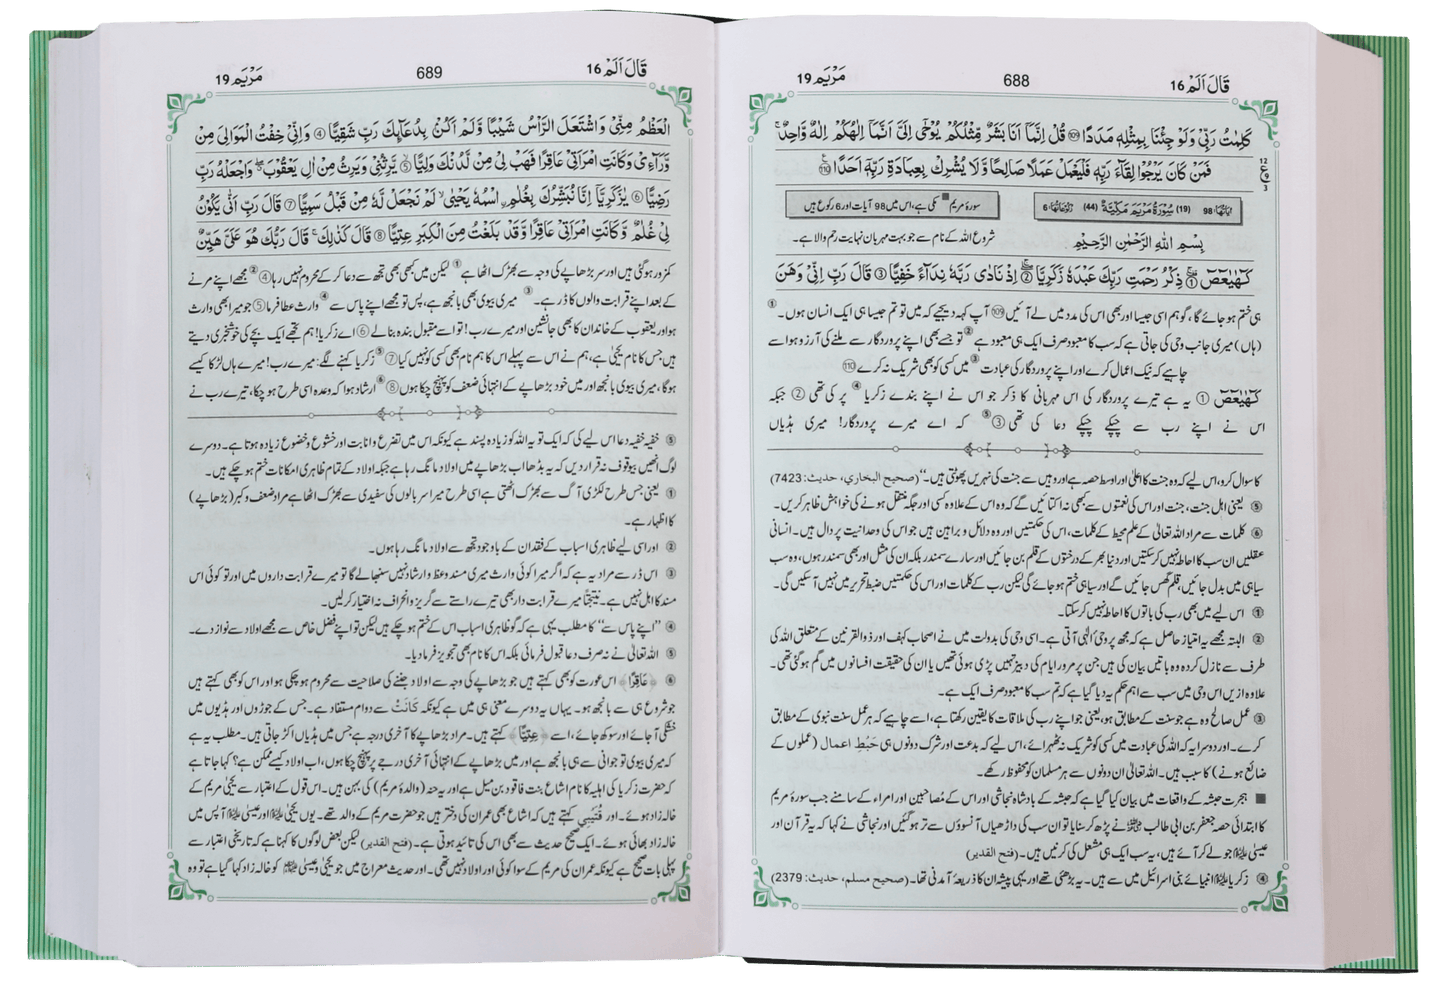 قَالَ اَلَمْ 16
688
مَرْيَم 19
كَلِمٰتُ رَبِّیْ وَلَوْ جِئْنَا بِمِثْلِهٖ مَدَدًا ﴿109﴾ قُلْ اِنَّمَاۤ اَنَا بَشَرٌ مِّثْلُكُمْ يُوْحٰۤی اِلَیَّ اَنَّمَاۤ اِلٰهُكُمْ اِلٰهٌ وَّاحِدٌ ۚ
فَمَنْ كَانَ يَرْجُوْا لِقَآءَ رَبِّهٖ فَلْيَعْمَلْ عَمَلًا صَالِحًا وَّلَا يُشْرِكْ بِعِبَادَةِ رَبِّهٖۤ اَحَدًا ﴿110﴾
اٰيَاتُهَا: 98 (19) سُوْرَةُ مَرْيَمَ مَكِّيَّةٌ (44) رُكُوْعَاتُهَا: 6
سورۂ مریم ■ مکی ہے، اس میں 98 آیات اور 6 رکوع ہیں
بِسْمِ اللّٰهِ الرَّحْمٰنِ الرَّحِيْمِ
شروع اللہ کے نام سے جو بہت مہربان نہایت رحم والا ہے۔
كٓهٰيٰعٓصٓ ① ذِكْرُ رَحْمَتِ رَبِّكَ عَبْدَهٗ زَكَرِيَّا ② اِذْ نَادٰی رَبَّهٗ نِدَآءً خَفِيًّا ③ قَالَ رَبِّ اِنِّیْ وَهَنَ
ہی ختم ہو جائے گا، گو ہم اسی جیسا اور بھی اس کی مدد میں لے آئیں ﴿109﴾ آپ کہہ دیجیے کہ میں تو تم جیسا ہی ایک انسان ہوں۔ ①
(ہاں) میری جانب وحی کی جاتی ہے کہ سب کا معبود صرف ایک ہی معبود ہے ② تو جسے بھی اپنے پروردگار سے ملنے کی آرزو ہو اسے
چاہیے کہ نیک اعمال کرے اور اپنے پروردگار کی عبادت ③ میں کسی کو بھی شریک نہ کرے ﴿110﴾
كٓهٰيٰعٓصٓ ① یہ ہے تیرے پروردگار کی اس مہربانی کا ذکر جو اس نے اپنے بندے زکریا ④ پر کی تھی ② جبکہ
اس نے اپنے رب سے چپکے چپکے دعا کی تھی ③ ⑤ کہ اے میرے پروردگار! میری ہڈیاں
کا سوال کرو، اس لیے کہ وہ جنت کا اعلیٰ اور اوسط حصہ ہے اور وہیں سے جنت کی نہریں پھوٹتی ہیں۔‘‘ (صحیح البخاری، حدیث: 7423)
⑤ یعنی اہل جنت، جنت اور اس کی نعمتوں سے کبھی نہ اکتائیں گے کہ وہ اس کے علاوہ کسی اور جگہ منتقل ہونے کی خواہش ظاہر کریں۔
⑥ کلمات سے مراد اللہ تعالیٰ کے علم محیط کے کلمات، اس کی حکمتیں اور وہ دلائل و براہین ہیں جو اس کی وحدانیت پر دال ہیں۔ انسانی
عقلیں ان سب کا احاطہ نہیں کر سکتیں اور دنیا بھر کے درختوں کے قلم بن جائیں اور سارے سمندر بلکہ ان کی مثل اور بھی سمندر ہوں، وہ سب
سیاہی میں بدل جائیں، قلم گھس جائیں گے اور سیاہی ختم ہو جائے گی لیکن رب کے کلمات اور اس کی حکمتیں ضبط تحریر میں نہیں آ سکیں گی۔
① اس لیے میں بھی رب کی باتوں کا احاطہ نہیں کر سکتا۔
② البتہ مجھے یہ امتیاز حاصل ہے کہ مجھ پر وحیٔ الٰہی آتی ہے۔ اسی وحی کی بدولت میں نے اصحاب کہف اور ذوالقرنین کے متعلق اللہ کی
طرف سے نازل کردہ وہ باتیں بیان کی ہیں جن پر مرور ایام کی دبیز تہیں پڑی ہوئی تھیں یا ان کی حقیقت افسانوں میں گم ہو گئی تھی۔
علاوہ ازیں اس وحی میں سب سے اہم حکم یہ دیا گیا ہے کہ تم سب کا معبود صرف ایک ہے۔
③ عمل صالح وہ ہے جو سنت کے مطابق ہو، یعنی جو اپنے رب کی ملاقات کا یقین رکھتا ہے، اسے چاہیے کہ ہر عمل سنت نبوی کے مطابق
کرے۔ اور دوسرا یہ کہ اللہ کی عبادت میں کسی کو شریک نہ ٹھہرائے، اس لیے کہ بدعت اور شرک دونوں ہی حَبطِ اعمال (عملوں کے
ضائع ہونے) کا سبب ہیں۔ اللہ تعالیٰ ان دونوں سے ہر مسلمان کو محفوظ رکھے۔
■ ہجرت حبشہ کے واقعات میں بیان کیا گیا ہے کہ حبشہ کے بادشاہ نجاشی اور اس کے مُصاحبین اور امراء کے سامنے جب سورۂ مریم
کا ابتدائی حصہ جعفر بن ابی طالب ؓ نے پڑھ کر سنایا تو ان سب کی داڑھیاں آنسوؤں سے تر ہو گئیں اور نجاشی نے کہا کہ یہ قرآن اور
عیسیٰ ؑ جو لے کر آئے ہیں، یہ سب ایک ہی مشعل کی کرنیں ہیں۔ (فتح القدیر)
④ زکریا ؑ انبیائے بنی اسرائیل میں سے ہیں۔ یہ بڑھئی تھے اور یہی پیشہ ان کا ذریعۂ آمدنی تھا۔ (صحیح مسلم، حدیث: 2379)
قَالَ اَلَمْ 16
689
مَرْيَم 19
الْعَظْمُ مِنِّیْ وَاشْتَعَلَ الرَّاْسُ شَيْبًا وَّلَمْ اَكُنْۢ بِدُعَآىِٕكَ رَبِّ شَقِيًّا ④ وَاِنِّیْ خِفْتُ الْمَوَالِیَ مِنْ
وَّرَآءِیْ وَكَانَتِ امْرَاَتِیْ عَاقِرًا فَهَبْ لِیْ مِنْ لَّدُنْكَ وَلِيًّا ⑤ يَّرِثُنِیْ وَيَرِثُ مِنْ اٰلِ يَعْقُوْبَ ۖ وَاجْعَلْهُ رَبِّ
رَضِيًّا ⑥ يٰزَكَرِيَّاۤ اِنَّا نُبَشِّرُكَ بِغُلٰمِ ۨاسْمُهٗ يَحْيٰی ۙ لَمْ نَجْعَلْ لَّهٗ مِنْ قَبْلُ سَمِيًّا ⑦ قَالَ رَبِّ اَنّٰی يَكُوْنُ
لِیْ غُلٰمٌ وَّكَانَتِ امْرَاَتِیْ عَاقِرًا وَّقَدْ بَلَغْتُ مِنَ الْكِبَرِ عِتِيًّا ⑧ قَالَ كَذٰلِكَ ۚ قَالَ رَبُّكَ هُوَ عَلَیَّ هَيِّنٌ
کمزور ہو گئی ہیں اور سر بڑھاپے کی وجہ سے بھڑک اٹھا ہے ① لیکن میں کبھی بھی تجھ سے دعا کر کے محروم نہیں رہا ④ ② مجھے اپنے مرنے
کے بعد اپنے قرابت والوں کا ڈر ہے۔ ③ میری بیوی بھی بانجھ ہے، پس تو مجھے اپنے پاس سے ④ وارث عطا فرما ⑤ جو میرا بھی وارث
ہو اور یعقوب کے خاندان کا بھی جانشین اور میرے رب! تو اسے مقبول بندہ بنا لے ⑥ اے زکریا! ہم تجھے ایک بچے کی خوشخبری دیتے
ہیں جس کا نام یحییٰ ہے، ہم نے اس سے پہلے اس کا ہم نام بھی کسی کو نہیں کیا ⑦ ⑤ زکریا کہنے لگے: میرے رب! میرے ہاں لڑکا کیسے
ہو گا، میری بیوی بانجھ اور میں خود بڑھاپے کے انتہائی ضعف کو پہنچ چکا ہوں ⑧ ⑥ ارشاد ہوا کہ وعدہ اسی طرح ہو چکا، تیرے رب نے
⑤ خفیہ خفیہ دعا اس لیے کی کہ ایک تو یہ اللہ کو زیادہ پسند ہے کیونکہ اس میں تضرع و انابت اور خشوع و خضوع زیادہ ہوتا ہے۔ دوسرے
لوگ انھیں بیوقوف نہ قرار دیں کہ یہ بڈھا اب بڑھاپے میں اولاد مانگ رہا ہے جبکہ اولاد کے تمام ظاہری امکانات ختم ہو چکے ہیں۔
① یعنی جس طرح لکڑی آگ سے بھڑک اٹھتی ہے اسی طرح میرا سر بالوں کی سفیدی سے بھڑک اٹھا ہے مراد ضعف و کبر (بڑھاپے)
کا اظہار ہے۔
② اور اسی لیے ظاہری اسباب کے فقدان کے باوجود تجھ سے اولاد مانگ رہا ہوں۔
③ اس ڈر سے مراد یہ ہے کہ اگر میرا کوئی وارث میری مسند وعظ و ارشاد نہیں سنبھالے گا تو میرے قرابت داروں میں اور تو کوئی اس
مسند کا اہل نہیں ہے۔ نتیجتاً میرے قرابت دار بھی تیرے راستے سے گریز و انحراف نہ اختیار کر لیں۔
④ ’’اپنے پاس سے‘‘ کا مطلب یہی ہے کہ گو ظاہری اسباب اس کے ختم ہو چکے ہیں لیکن تو اپنے فضل خاص سے مجھے اولاد سے نواز دے۔
⑤ اللہ تعالیٰ نے نہ صرف دعا قبول فرمائی بلکہ اس کا نام بھی تجویز فرما دیا۔
⑥ ﴿عَاقِرًا﴾ اس عورت کو بھی کہتے ہیں جو بڑھاپے کی وجہ سے اولاد جننے کی صلاحیت سے محروم ہو چکی ہو اور اس کو بھی کہتے ہیں
جو شروع ہی سے بانجھ ہو۔ یہاں یہ دوسرے معنی ہی میں ہے کیونکہ كَانَتْ سے دوام مستفاد ہے۔ جس کے جوڑوں اور ہڈیوں میں
خشکی آ جائے اور سوکھ جائے، اسے ﴿عِتِيًّا﴾ کہتے ہیں۔ مراد بڑھاپے کا آخری درجہ ہے جس میں ہڈیاں اکڑ جاتی ہیں۔ مطلب یہ ہے
کہ میری بیوی تو جوانی سے ہی بانجھ ہے اور میں بڑھاپے کے انتہائی آخری درجے پر پہنچ چکا ہوں، اب اولاد کیسے ممکن ہے؟ کہا جاتا ہے
کہ حضرت زکریا کی اہلیہ کا نام اشاع بنت فاقود بن میل ہے اور یہ حنہ (والدۂ مریم) کی بہن ہیں۔ اس قول کے اعتبار سے یحییٰ مریم کے
خالہ زاد ہوئے۔ اور قُتَیبی کہتے ہیں کہ اشاع بھی عمران کی دختر ہیں جو حضرت مریم کے والد تھے۔ یوں یحییٰ ؑ اور عیسیٰ ؑ آپس میں
خالہ زاد بھائی ہوئے۔ ایک صحیح حدیث سے بھی اس کی تائید ہوتی ہے۔ (فتح القدیر) لیکن بعض لوگوں کا کہنا ہے کہ تاریخی اعتبار سے
پہلی بات صحیح ہے کیونکہ عمران کی مریم کے سوا کوئی اور اولاد نہیں تھی۔ اور حدیث معراج میں جو یحییٰ و عیسیٰ ؑ کو خالہ زاد کہا گیا ہے تو وہ